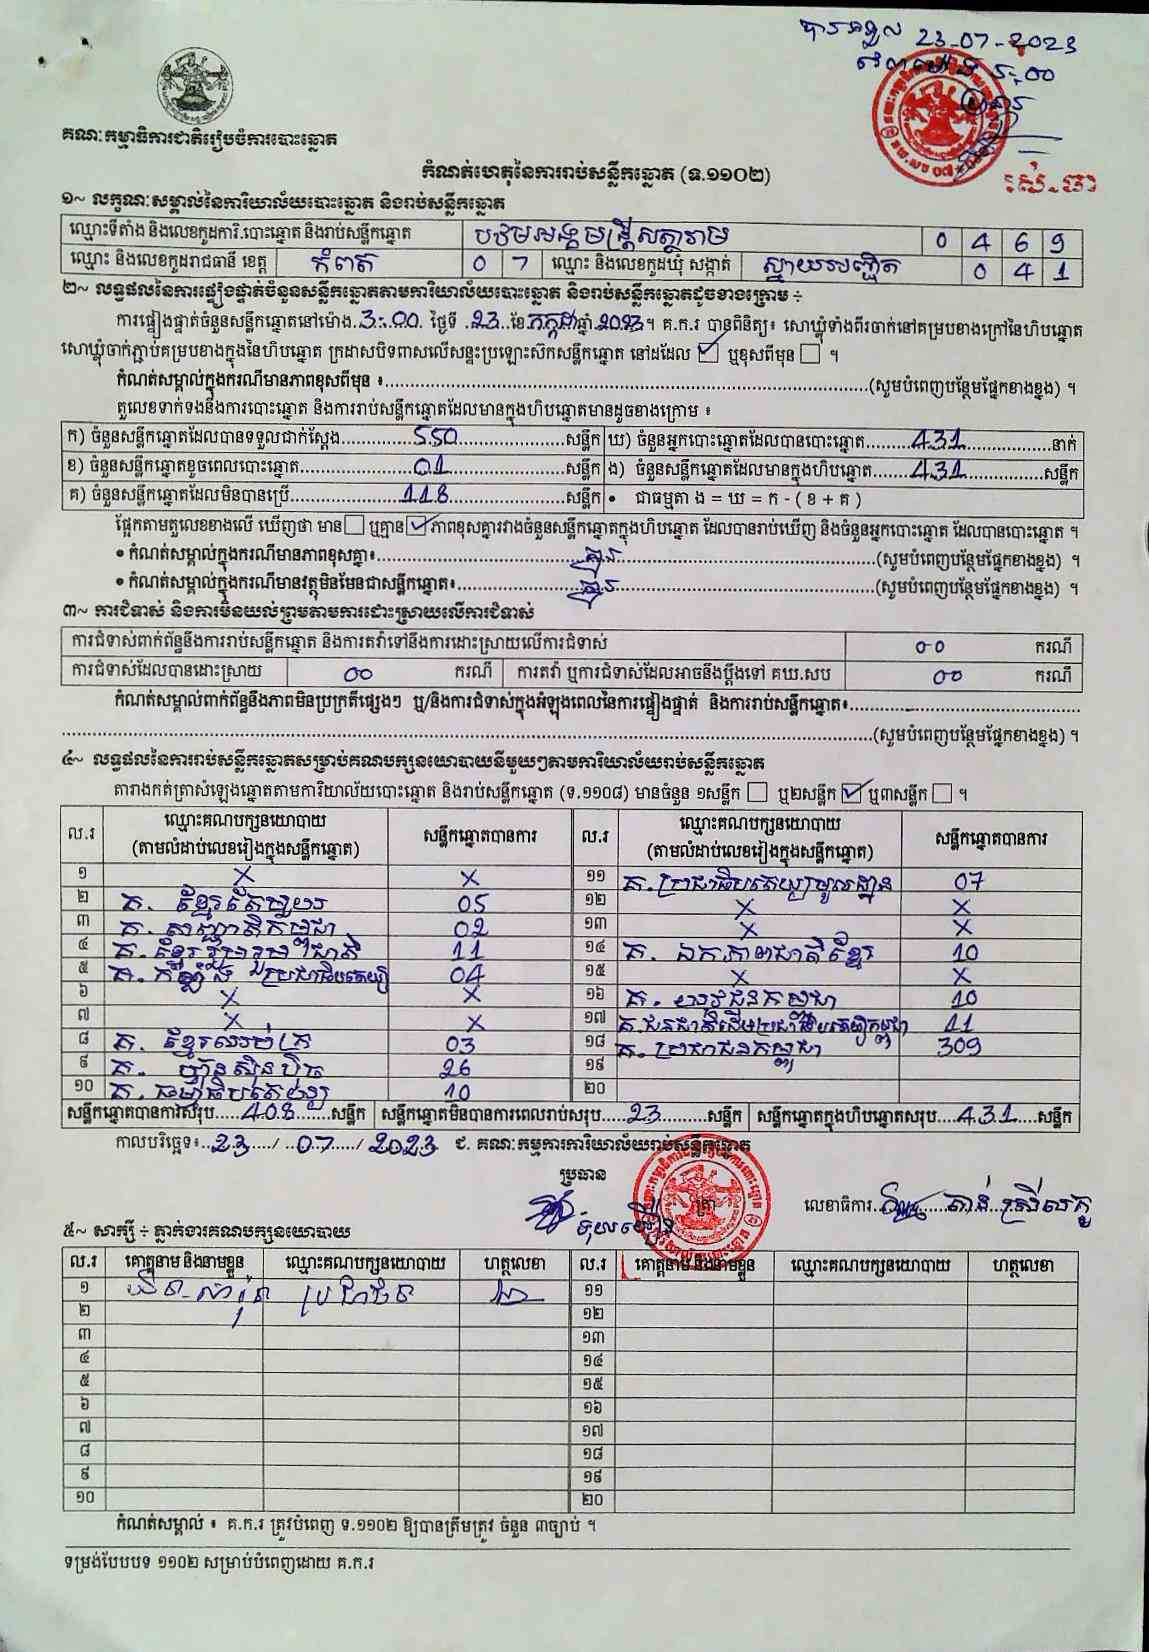 23-07-2023
គណៈកម្មាធិការជាតិរៀបចំការបោះឆ្នោត
កំណត់ហេតុនៃការរាប់សន្លឹកឆ្នោត (ទ.១១០២)
១~ លក្ខណៈសម្គាល់នៃការិយាល័យបោះឆ្នោត និងរាប់សន្លឹកឆ្នោត
ឈ្មោះទីតាំង និងលេខកូដការិ.បោះឆ្នោត និងរាប់សន្លឹកឆ្នោត 0 4 6 9
ឈ្មោះ និងលេខកូដរាជធានី ខេត្ត កំពត 0 7 ឈ្មោះ និងលេខកូដឃុំ សង្កាត់ 0 4 1
២~ លទ្ធផលនៃការផ្ទៀងផ្ទាត់ចំនួនសន្លឹកឆ្នោតតាមការិយាល័យបោះឆ្នោត និងរាប់សន្លឹកឆ្នោតដូចខាងក្រោម ÷
ការផ្ទៀងផ្ទាត់ចំនួនសន្លឹកឆ្នោតនៅម៉ោង 3:00 ថ្ងៃទី 23 ខែ កក្កដា ឆ្នាំ 2023 ។ គ.ក.រ បានពិនិត្យ៖ សោឃ្លុំទាំងពីរចាក់នៅគម្របខាងក្រៅនៃហិបឆ្នោត
សោឃ្លុំចាក់ភ្ជាប់គម្របខាងក្នុងនៃហិបឆ្នោត ក្រដាសបិទពាសលើសន្ទះប្រឡោះស៊កសន្លឹកឆ្នោត នៅដដែល ☑ ឬខុសពីមុន ☐ ។
កំណត់សម្គាល់ក្នុងករណីមានភាពខុសពីមុន ៖ (សូមបំពេញបន្ថែមផ្នែកខាងខ្នង) ។
តួលេខទាក់ទងនឹងការបោះឆ្នោត និងការរាប់សន្លឹកឆ្នោតដែលមានក្នុងហិបឆ្នោតមានដូចខាងក្រោម ៖
ក) ចំនួនសន្លឹកឆ្នោតដែលបានទទួលជាក់ស្តែង 550 សន្លឹក ឃ) ចំនួនអ្នកបោះឆ្នោតដែលបានបោះឆ្នោត 431 នាក់
ខ) ចំនួនសន្លឹកឆ្នោតខូចពេលបោះឆ្នោត 01 សន្លឹក ង) ចំនួនសន្លឹកឆ្នោតដែលមានក្នុងហិបឆ្នោត 431 សន្លឹក
គ) ចំនួនសន្លឹកឆ្នោតដែលមិនបានប្រើ 118 សន្លឹក • ជាធម្មតា ង = ឃ = ក - ( ខ + គ )
ផ្អែកតាមតួលេខខាងលើ ឃើញថា មាន ☐ ឬគ្មាន ☑ ភាពខុសគ្នារវាងចំនួនសន្លឹកឆ្នោតក្នុងហិបឆ្នោត ដែលបានរាប់ឃើញ និងចំនួនអ្នកបោះឆ្នោត ដែលបានបោះឆ្នោត ។
• កំណត់សម្គាល់ក្នុងករណីមានភាពខុសគ្នា៖ គ្មាន (សូមបំពេញបន្ថែមផ្នែកខាងខ្នង) ។
• កំណត់សម្គាល់ក្នុងករណីមានវត្ថុមិនមែនជាសន្លឹកឆ្នោត៖ គ្មាន (សូមបំពេញបន្ថែមផ្នែកខាងខ្នង) ។
៣~ ការជំទាស់ និងការមិនយល់ព្រមតាមការដោះស្រាយលើការជំទាស់
ការជំទាស់ពាក់ព័ន្ធនឹងការរាប់សន្លឹកឆ្នោត និងការតវ៉ាទៅនឹងការដោះស្រាយលើការជំទាស់ 00 ករណី
ការជំទាស់ដែលបានដោះស្រាយ 00 ករណី ការតវ៉ា ឬការជំទាស់ដែលអាចនឹងប្តឹងទៅ គឃ.សប 00 ករណី
កំណត់សម្គាល់ពាក់ព័ន្ធនឹងភាពមិនប្រក្រតីផ្សេងៗ ឬ/និងការជំទាស់ក្នុងអំឡុងពេលនៃការផ្ទៀងផ្ទាត់ និងការរាប់សន្លឹកឆ្នោត៖
(សូមបំពេញបន្ថែមផ្នែកខាងខ្នង) ។
៤~ លទ្ធផលនៃការរាប់សន្លឹកឆ្នោតសម្រាប់គណបក្សនយោបាយនីមួយៗតាមការិយាល័យរាប់សន្លឹកឆ្នោត
តារាងកត់ត្រាសំឡេងឆ្នោតតាមការិយាល័យបោះឆ្នោត និងរាប់សន្លឹកឆ្នោត (ទ.១១០៨) មានចំនួន ១សន្លឹក ☐ ឬ២សន្លឹក ☑ ឬ៣សន្លឹក ☐ ។
ល.រ ឈ្មោះគណបក្សនយោបាយ (តាមលំដាប់លេខរៀងក្នុងសន្លឹកឆ្នោត) សន្លឹកឆ្នោតបានការ ល.រ ឈ្មោះគណបក្សនយោបាយ (តាមលំដាប់លេខរៀងក្នុងសន្លឹកឆ្នោត) សន្លឹកឆ្នោតបានការ
១ X X ១១ គ. ប្រជាធិបតេយ្យមូលដ្ឋាន 07
២ គ. ខ្មែរតែមួយ 05 ១២ X X
៣ គ. សញ្ជាតិកម្ពុជា 02 ១៣ X X
៤ គ. ខ្មែររួបរួមជាតិ 11 ១៤ គ. ឯកភាពជាតិខ្មែរ 10
៥ គ. កម្លាំងប្រជាធិបតេយ្យ 04 ១៥ X X
៦ X X ១៦ គ. យុវជនកម្ពុជា 10
៧ X X ១៧ គ. ជនជាតិដើមប្រជាធិបតេយ្យកម្ពុជា 11
៨ គ. ខ្មែរឈប់ក្រ 03 ១៨ គ. ប្រជាជនកម្ពុជា 309
៩ គ. ហ្វ៊ុនស៊ិនប៉ិច 26 ១៩
១០ គ. ធម្មាធិបតេយ្យ 10 ២០
សន្លឹកឆ្នោតបានការសរុប 408 សន្លឹក សន្លឹកឆ្នោតមិនបានការពេលរាប់សរុប 23 សន្លឹក សន្លឹកឆ្នោតក្នុងហិបឆ្នោតសរុប 431 សន្លឹក
កាលបរិច្ឆេទ៖ 23 / 07 / 2023 ជ. គណៈកម្មការការិយាល័យរាប់សន្លឹកឆ្នោត
ប្រធាន ត្រា លេខាធិការ
៥~ សាក្សី ÷ ភ្នាក់ងារគណបក្សនយោបាយ
ល.រ គោត្តនាម និងនាមខ្លួន ឈ្មោះគណបក្សនយោបាយ ហត្ថលេខា ល.រ គោត្តនាម និងនាមខ្លួន ឈ្មោះគណបក្សនយោបាយ ហត្ថលេខា
១ ប្រជាជន ១១
២ ១២
៣ ១៣
៤ ១៤
៥ ១៥
៦ ១៦
៧ ១៧
៨ ១៨
៩ ១៩
១០ ២០
កំណត់សម្គាល់ ៖ គ.ក.រ ត្រូវបំពេញ ទ.១១០២ ឱ្យបានត្រឹមត្រូវ ចំនួន ៣ច្បាប់ ។
ទម្រង់បែបបទ ១១០២ សម្រាប់បំពេញដោយ គ.ក.រ